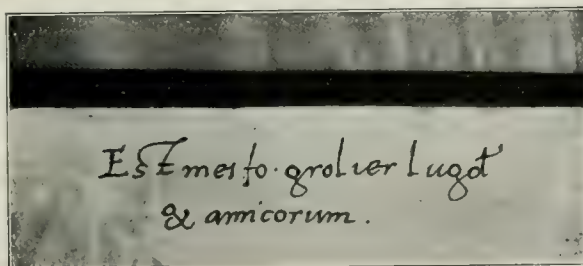 Est mei Io. grolier lugd
& amicorum.